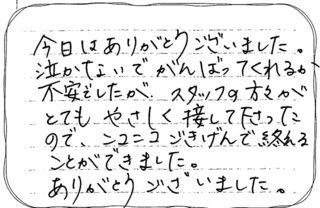 今日はありがとうございました。
泣かないでがんばってくれるか
不安でしたが、スタッフの方々が
とてもやさしく接して下さった
ので、ニコニコごきげんで終れる
ことができました。
ありがとうございました。